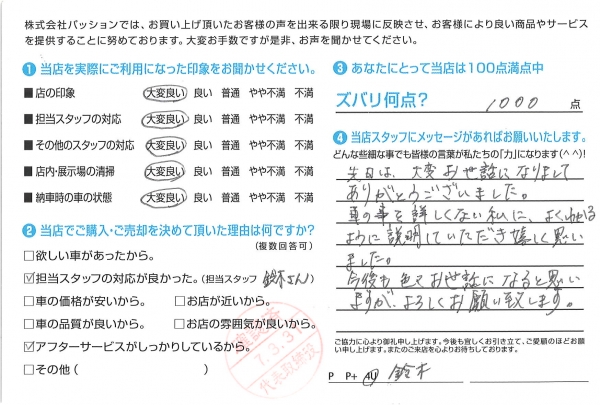 株式会社パッションでは、お買い上げ頂いたお客様の声を出来る限り現場に反映させ、お客様により良い商品やサービス
を提供することに努めております。大変お手数ですが是非、お声を聞かせてください。
❶ 当店を実際にご利用になった印象をお聞かせください。
■店の印象 大変良い 良い 普通 やや不満 不満
■担当スタッフの対応 大変良い 良い 普通 やや不満 不満
■その他のスタッフの対応 大変良い 良い 普通 やや不満 不満
■店内・展示場の清掃 大変良い 良い 普通 やや不満 不満
■納車時の車の状態 大変良い 良い 普通 やや不満 不満
❷ 当店でご購入・ご売却を決めて頂いた理由は何ですか?
(複数回答可)
□欲しい車があったから。
☑担当スタッフの対応が良かった。(担当スタッフ 鈴木さん)
□車の価格が安いから。 □お店が近いから。
□車の品質が良いから。 □お店の雰囲気が良いから。
☑アフターサービスがしっかりしているから。
□その他( )
7.3.31
❸ あなたにとって当店は100点満点中
ズバリ何点? 1000 点
❹ 当店スタッフにメッセージがあればお願いいたします。
どんな些細な事でも皆様の言葉が私たちの「力」になります(^^)!
先日は、大変お世話になりまして
ありがとうございました。
車の事を詳しくない私に、よく分る
ように説明していただき嬉しく思い
ました。
今後も色々お世話になると思い
ますが、よろしくお願い致します。
ご協力に心より御礼申し上げます。今後も宜しくお引き立て、ご愛顧のほどお願
い申し上げます。またのご来店を心よりお待ちしております。
P P+ 4U 鈴木